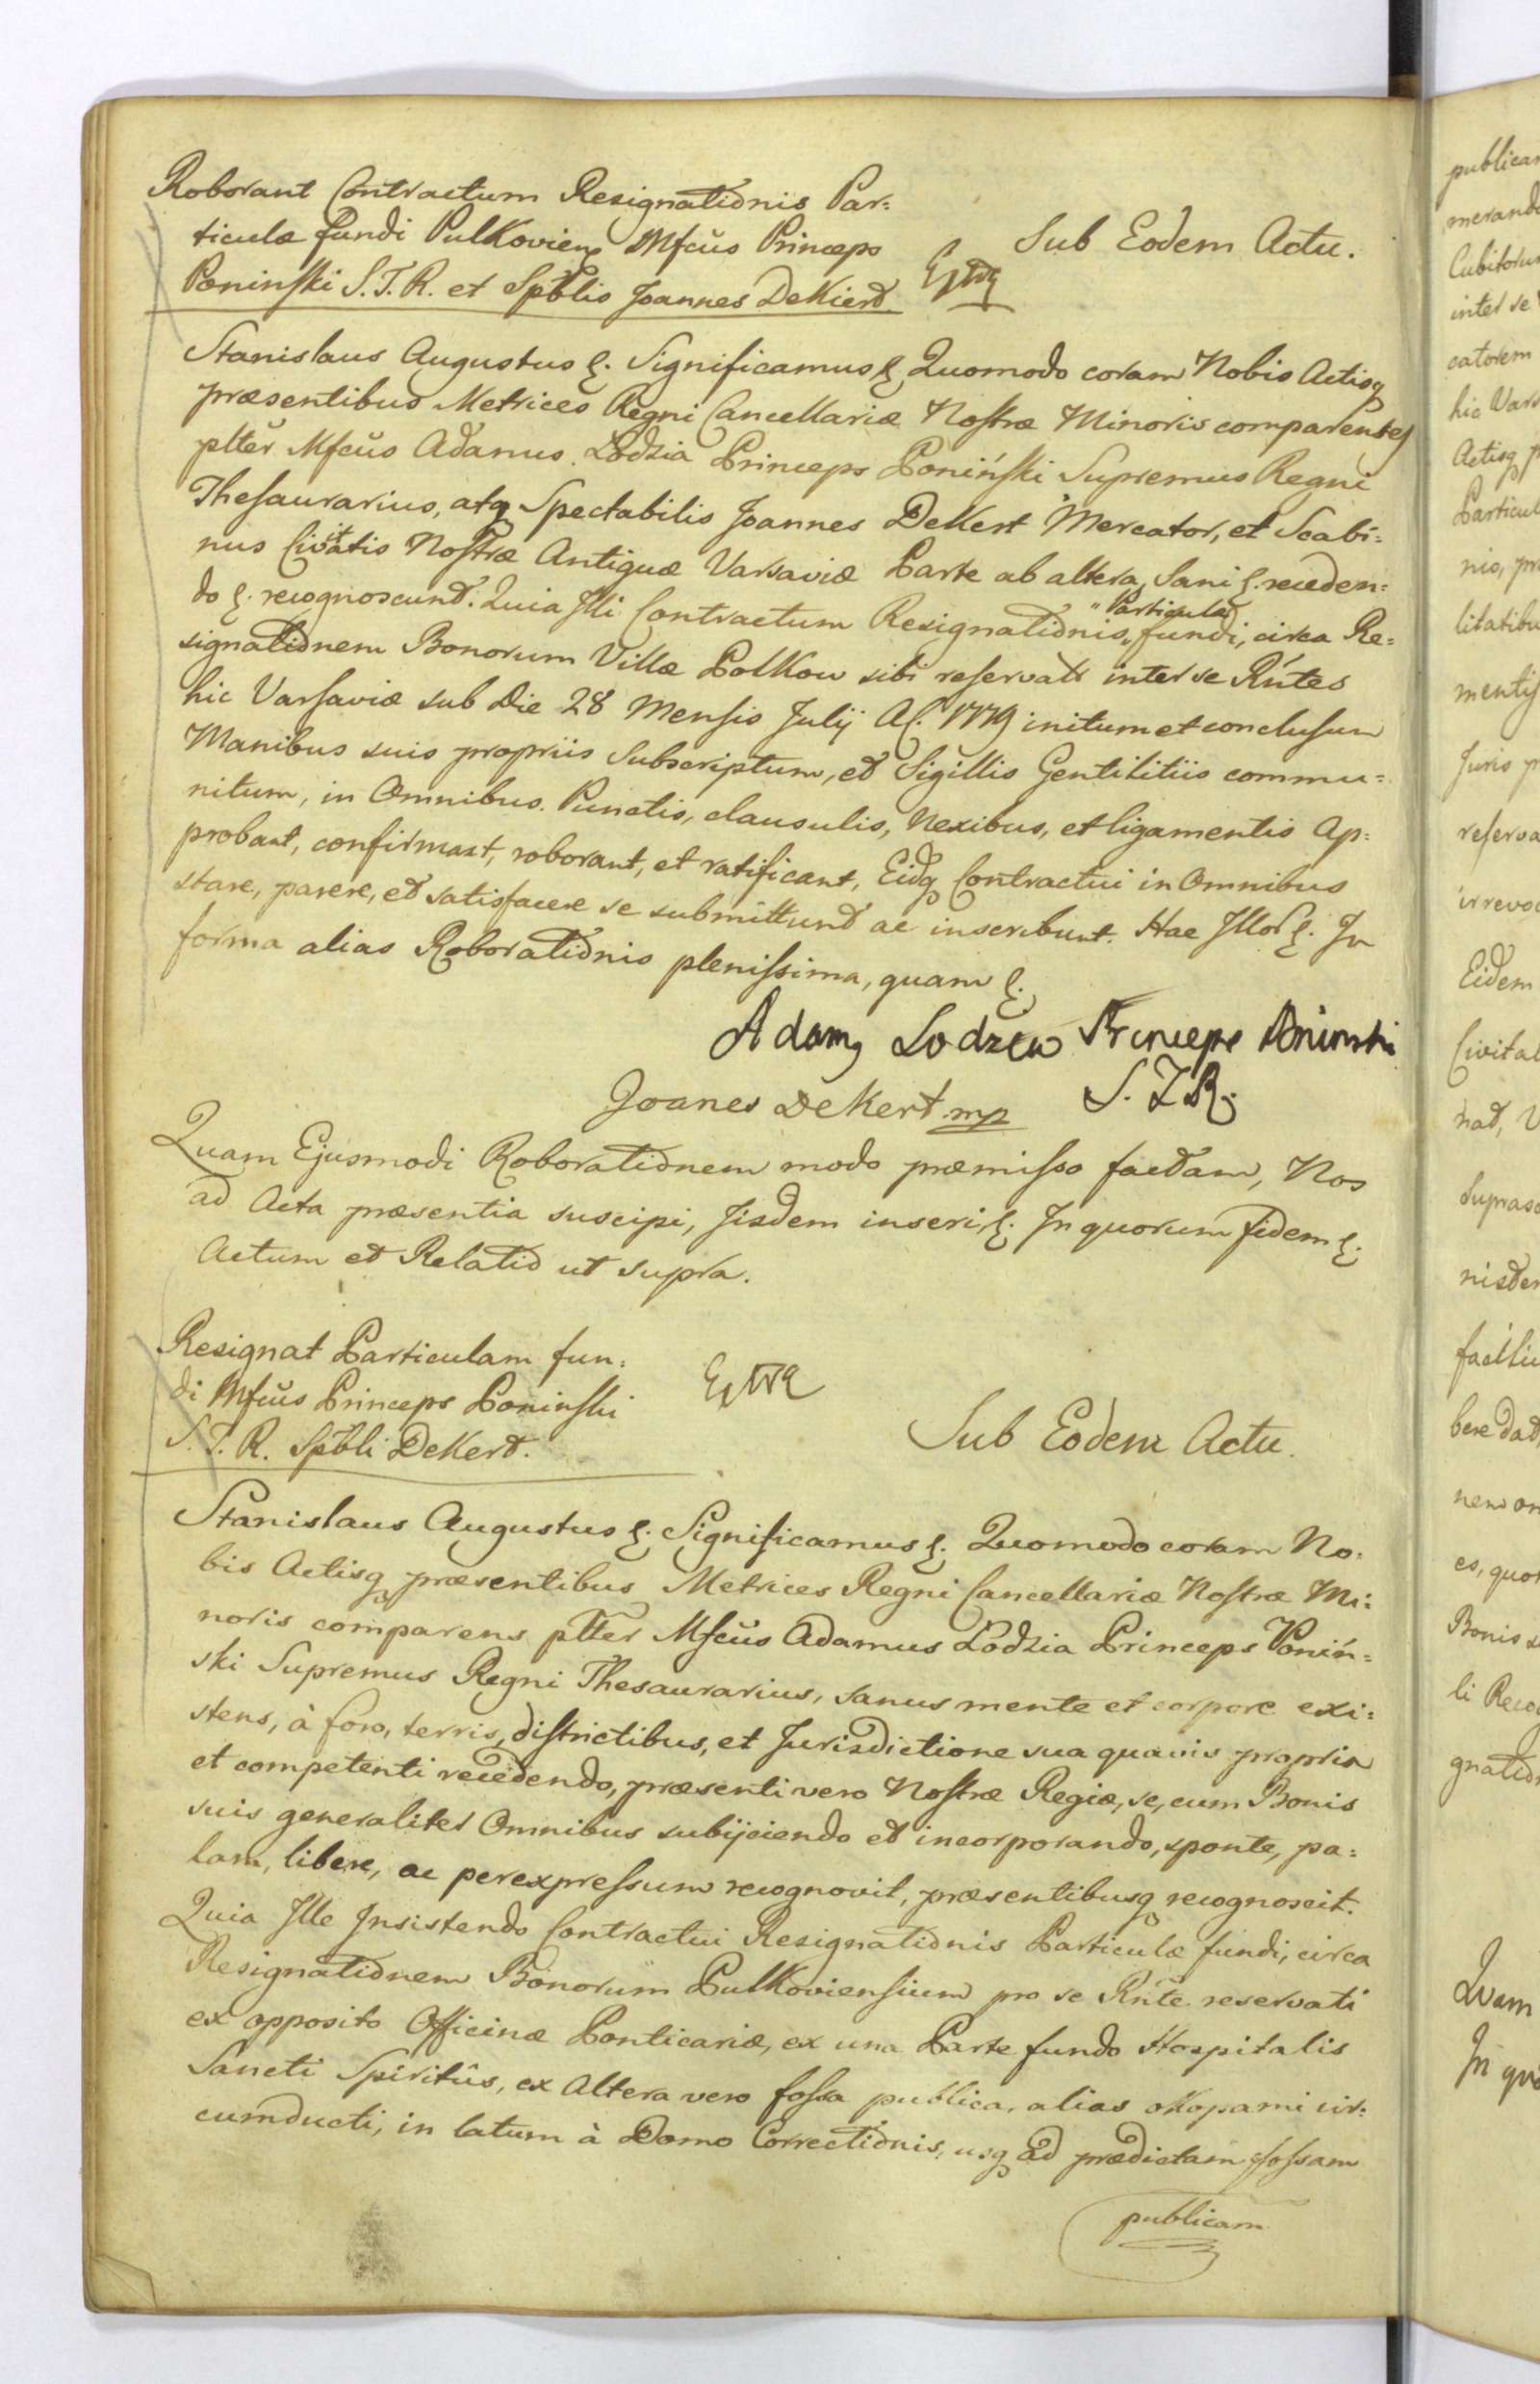 Roborant Contractum Resignationis Par=
ticulæ fundi Pulkovien Mfcus Princeps
Poninski S.T.R. et Spblis Joannes DeKiert.
Extr
Sub Eodem Actu.
Stanislaus Augustus &. Significamus & Quomodo coram Nobis Actisq
præsentibus Metrices Regni Cancellariæ Nostræ Minoris comparentes
pltter Mfcus Adamus Lodzia Princeps Poniński Supremus Regni
Thesaurarius, atq Spectabilis Joannes DeKert Mercator, et Scabi=
nus Civitatis Nostræ Antiquæ Varsaviæ Parte ab altera, Sani &. receden=
do &. recognoscunt. Quia Illi Contractum Resignationis "Particulæ" fundi, circa Re=
signationem Bonorum Villæ Polkow sibi reservati inter se Rntes
hic Varsaviæ sub Die 28 Mensis Julij A. 1779 initum et conclusum
Manibus suis propriis Subscriptum, et Sigillis Gentilitiis commu=
nitum, in Omnibus. Punctis, clausulis, Nexibus, et ligamentis Ap=
probant, confirmant, roborant, et ratificant, Eidq Contractui in Omnibus
stare, parere, et satisfacere se submittunt ac inscribunt. Hac Illor &. In
forma alias Roborationis plenissima, quam &.
Adamq Lodzia Princeps Poninski
Joanes DeKert mp S.T.R.
Quam Ejusmodi Roborationem modo præmisso factam, Nos
ad Acta præsentia suscipi, Iisdem inseri &. In quorum fidem &.
Actum et Relatio ut supra.
Resignat Particulam fun=
di Mfcus Princeps Poninski
S.T.R. Spbli DeKert.
Extr
Sub Eodem Actu.
Stanislaus Augustus &. Significamus &. Quomodo coram No=
bis Actisq præsentibus Metrices Regni Cancellariæ Nostræ Mi=
noris comparens pltter Mfcus Adamus Lodzia Princeps Poniń=
ski Supremus Regni Thesaurarius, sanus mente et corpore exi=
stens, à foro, terris, districtibus, et Jurisdictione sua quavis propria
et competenti recedendo, præsenti vero Nostræ Regiæ, se, cum Bonis
suis generaliter Omnibus subijciendo et incorporando, sponte, pa=
lam, libere, ac per expressum recognovit, præsentibusq recognoscit.
Quia Ille Insistendo Contractui Resignationis Particulæ fundi, circa
Resignationem Bonorum Pulkoviensium pro se Rnte reservati
ex opposito Officinæ Ponticariæ, ex una Parte fundo Hospitalis
Sancti Spiritûs, ex Altera vero fossa publica, alias okopami cir=
cumducti, in latum à Domo Correctionis, usq ad prædictam fossam
publicam
publicam
merand
Cubitorum
inter se
catorem
hic Vars
Actisq p
Particul
nis, pr
litatibu
mentis
Juris p
reserva
irrevoc
Eidem
Civitat
nat, V
Suprasc
nisdem
facilit
bere dat,
nem om
es, quor
Bonis s
li Recog
gnation
Quam
In quo